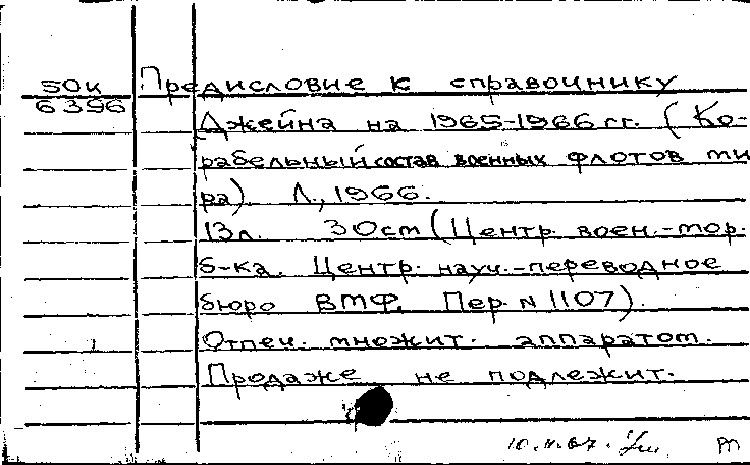 50к Предисловие к справочнику
6396
Джейна на 1965-1966 гг. (Ко-
рабельный состав военных флотов ми
ра). Л., 1966.
13л. 30см (Центр. воен.-мор.
б-ка. Центр. науч.-переводное
бюро ВМФ. Пер. N 1107).
Отпеч. множит. аппаратом.
Продаже не подлежит.